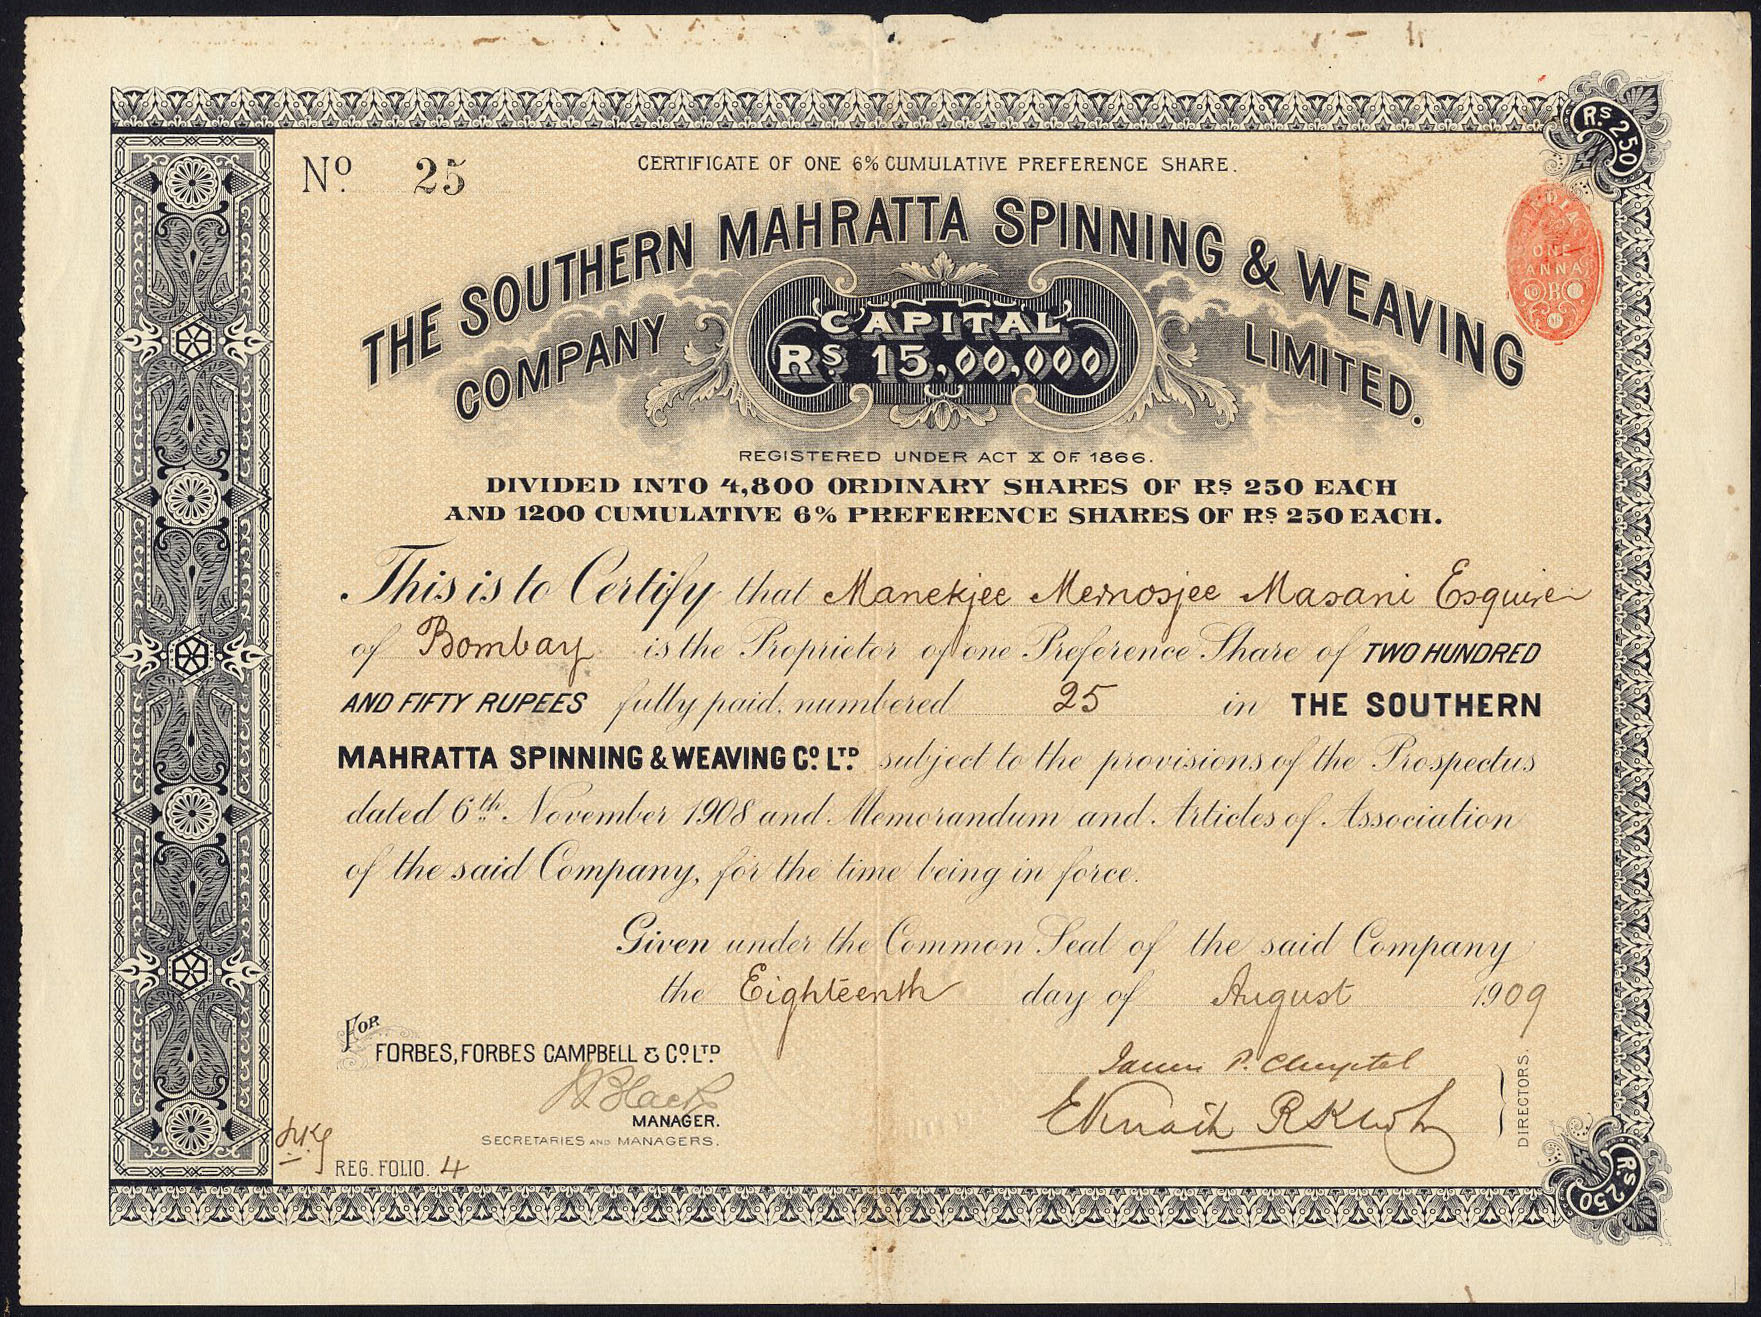 Nº. 25
CERTIFICATE OF ONE 6% CUMULATIVE PREFERENCE SHARE.
RS 250
INDIA
ONE
ANNA
THE SOUTHERN MAHRATTA SPINNING & WEAVING
COMPANY LIMITED.
CAPITAL
RS 15,00,000
REGISTERED UNDER ACT X OF 1866.
DIVIDED INTO 4,800 ORDINARY SHARES OF RS 250 EACH
AND 1200 CUMULATIVE 6% PREFERENCE SHARES OF RS 250 EACH.
This is to Certify that Manekjee Mernosjee Masani Esquire
of Bombay is the Proprietor of one Preference Share of TWO HUNDRED
AND FIFTY RUPEES fully paid, numbered 25 in THE SOUTHERN
MAHRATTA SPINNING & WEAVING CO. LTD. subject to the provisions of the Prospectus
dated 6th November 1908 and Memorandum and Articles of Association
of the said Company, for the time being in force.
Given under the Common Seal of the said Company
the Eighteenth day of August 1909
FOR
FORBES, FORBES CAMPBELL & CO LTD
Black
MANAGER.
SECRETARIES AND MANAGERS.
DIRECTORS.
REG. FOLIO. 4
RS 250